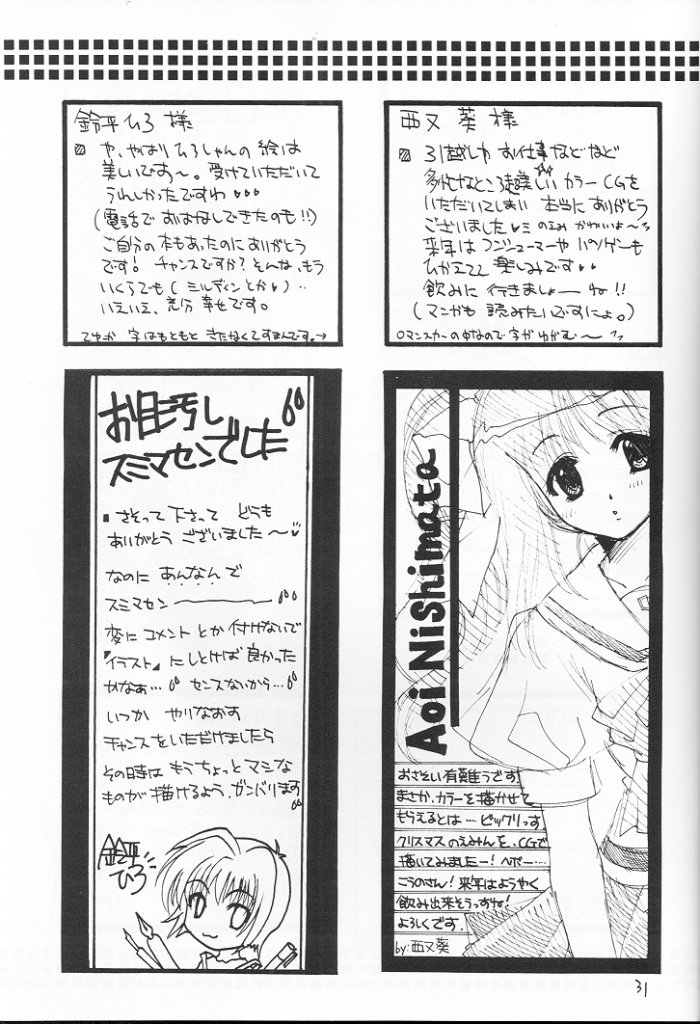 鈴平ひろ 様
や、やはり ひろしゃんの 絵は
美しいです〜。受けていただいて
うれしかったですわ
(電話で おはなしできたのも!!)
ご自分の本もあったのに ありがとう
です! チャンスですか? そんな、もう
いくらでも(
いえいえ、充分 幸せです。
てゆか 字はもともと きたなくてすまんです。→
西又 葵 様
引越しや お仕事などなど
多忙なところ超美しい カラーCGを
いただいてしまい 本当に ありがとう
ございました
来年は コンシューマーや パソゲーも
ひかえてて 楽しみです
飲みに 行きましょーね!!
(マンガも 読みたいですにょ。)
お目汚し
スミマセンでした
さそって下さって どうも
ありがとう ございました〜
なのに あんなんで
スミマセン
変に コメント とか 付けないで
『イラスト』にしとけば 良かった
かなぁ… センスないから…
いつか やりなおす
チャンスをいただけましたら
その時は もうちょっと マシな
ものが 描けるよう、ガンバリます
鈴平
ひろ
Aoi Nishimata
おさそい有難うです
まさか、カラーを描かせて
もらえるとは…ビックリっす
クリスマスのえみんを、CGで
描いてみましたー!ヘボー…
こうのさん!来年はようやく
飲み出来そうっすね!
よろしくです。
by:西又葵
31